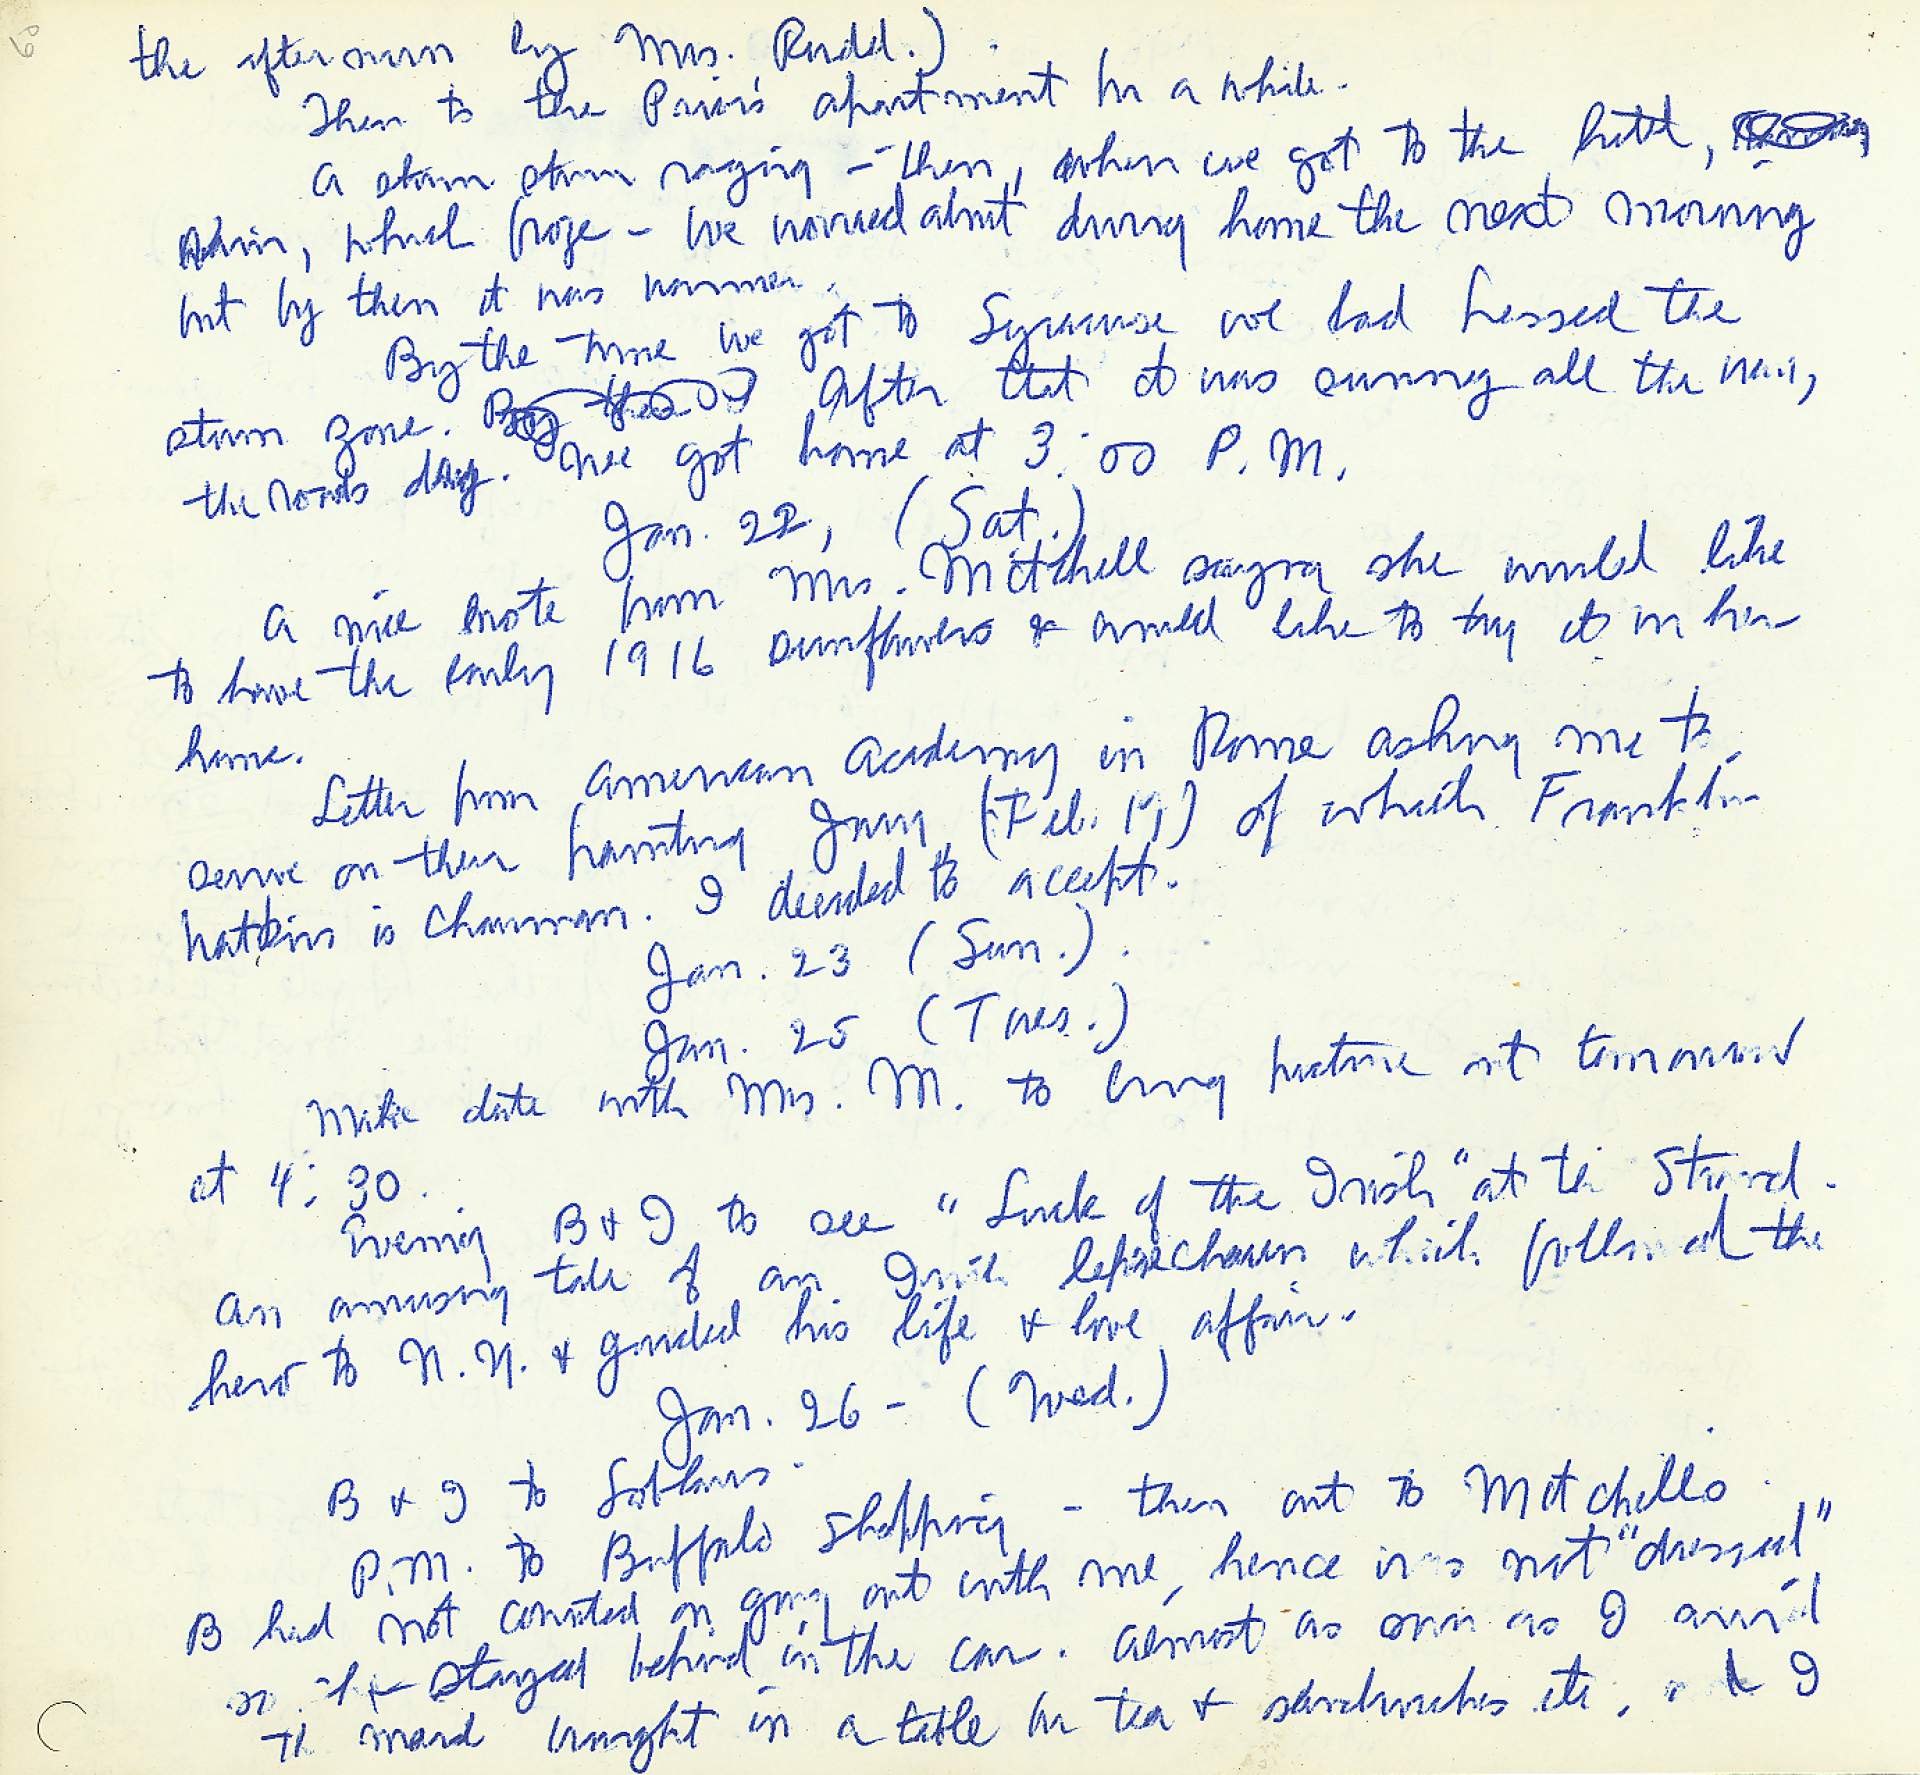 the afternoon by Mrs. Rudd.)
Then to the Prior's apartment for a while.
A storm storm raging – then, when we got to the hotel,
rain, which froze – We worried about driving home the next morning
but by then it was warmer.
By the time we got to Syracuse we had passed the
storm zone. After that it was sunny all the way,
the roads dry. We got home at 3:00 P.M.
Jan. 22, (Sat.)
A nice note from Mrs. Mitchell saying she would like
to have the early 1916 sunflowers & would like to try it in her
home.
Letter from American Academy in Rome asking me to
serve on their painting Jury (Feb. 19) of which Franklin
Watkins is Chairman. I decided to accept.
Jan. 23 (Sun.).
Jan. 25 (Tues.)
Make date with Mrs. M. to bring picture out tomorrow
at 4:30.
Evening B & I to see "Luck of the Irish" at the Strand.
An amusing tale of an Irish leprechaun which followed the
hero to N.Y. & guided his life & love affair.
Jan. 26 – (Wed.)
B & I to
P.M. to Buffalo shopping – then out to Mitchells.
B had not counted on going out with me, hence was not "dressed"
so she stayed behind in the car. Almost as soon as I arriv'd
The maid brought in a table for tea & sandwiches etc, and I